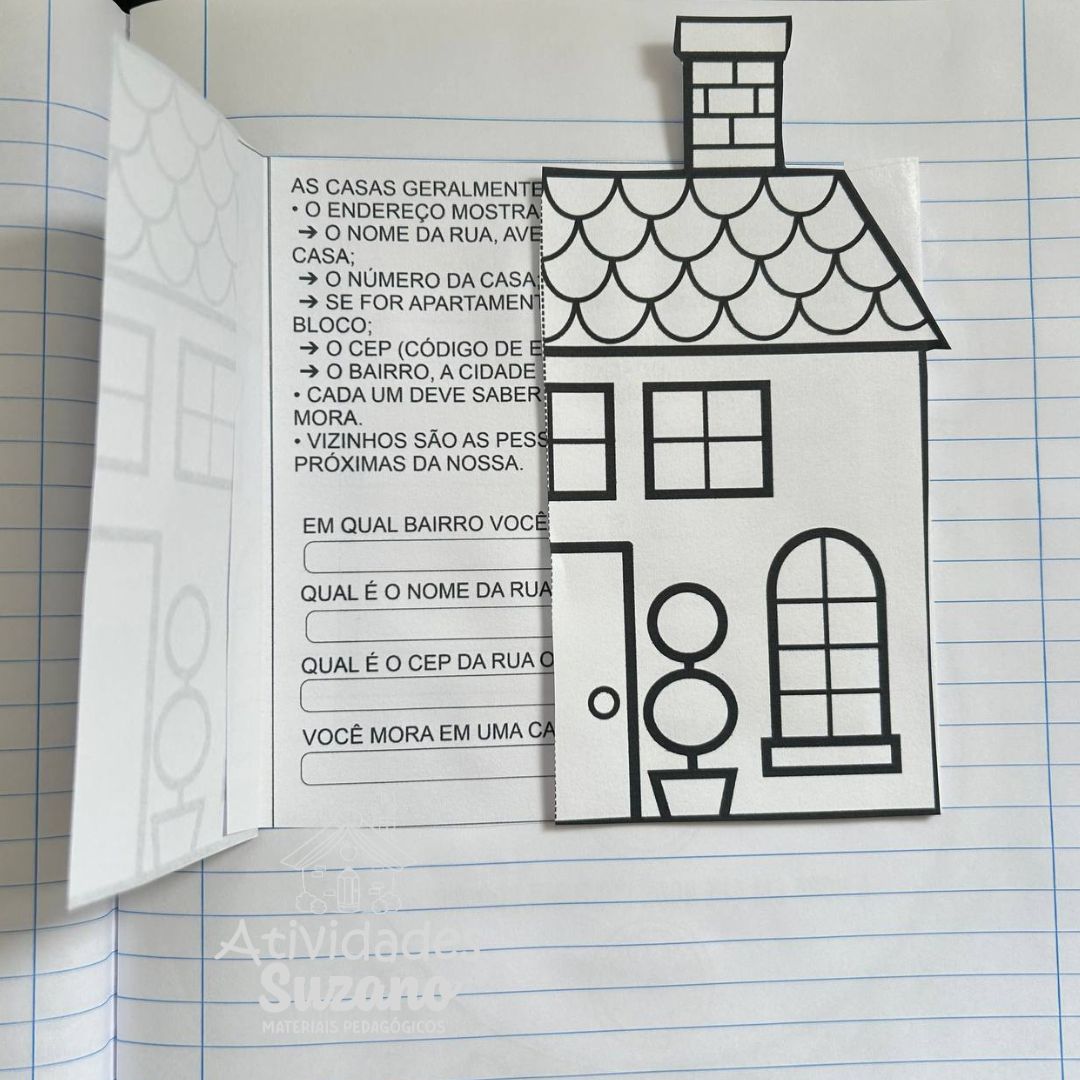 AS CASAS GERALMENTE
• O ENDEREÇO MOSTRA
➔ O NOME DA RUA, AVE
CASA;
➔ O NÚMERO DA CASA
➔ SE FOR APARTAMENT
BLOCO;
➔ O CEP (CÓDIGO DE E
➔ O BAIRRO, A CIDADE
• CADA UM DEVE SABER
MORA.
• VIZINHOS SÃO AS PESS
PRÓXIMAS DA NOSSA.
EM QUAL BAIRRO VOCÊ
QUAL É O NOME DA RUA
QUAL É O CEP DA RUA O
VOCÊ MORA EM UMA CA
Atividades
Suzano
MATERIAIS PEDAGÓGICOS